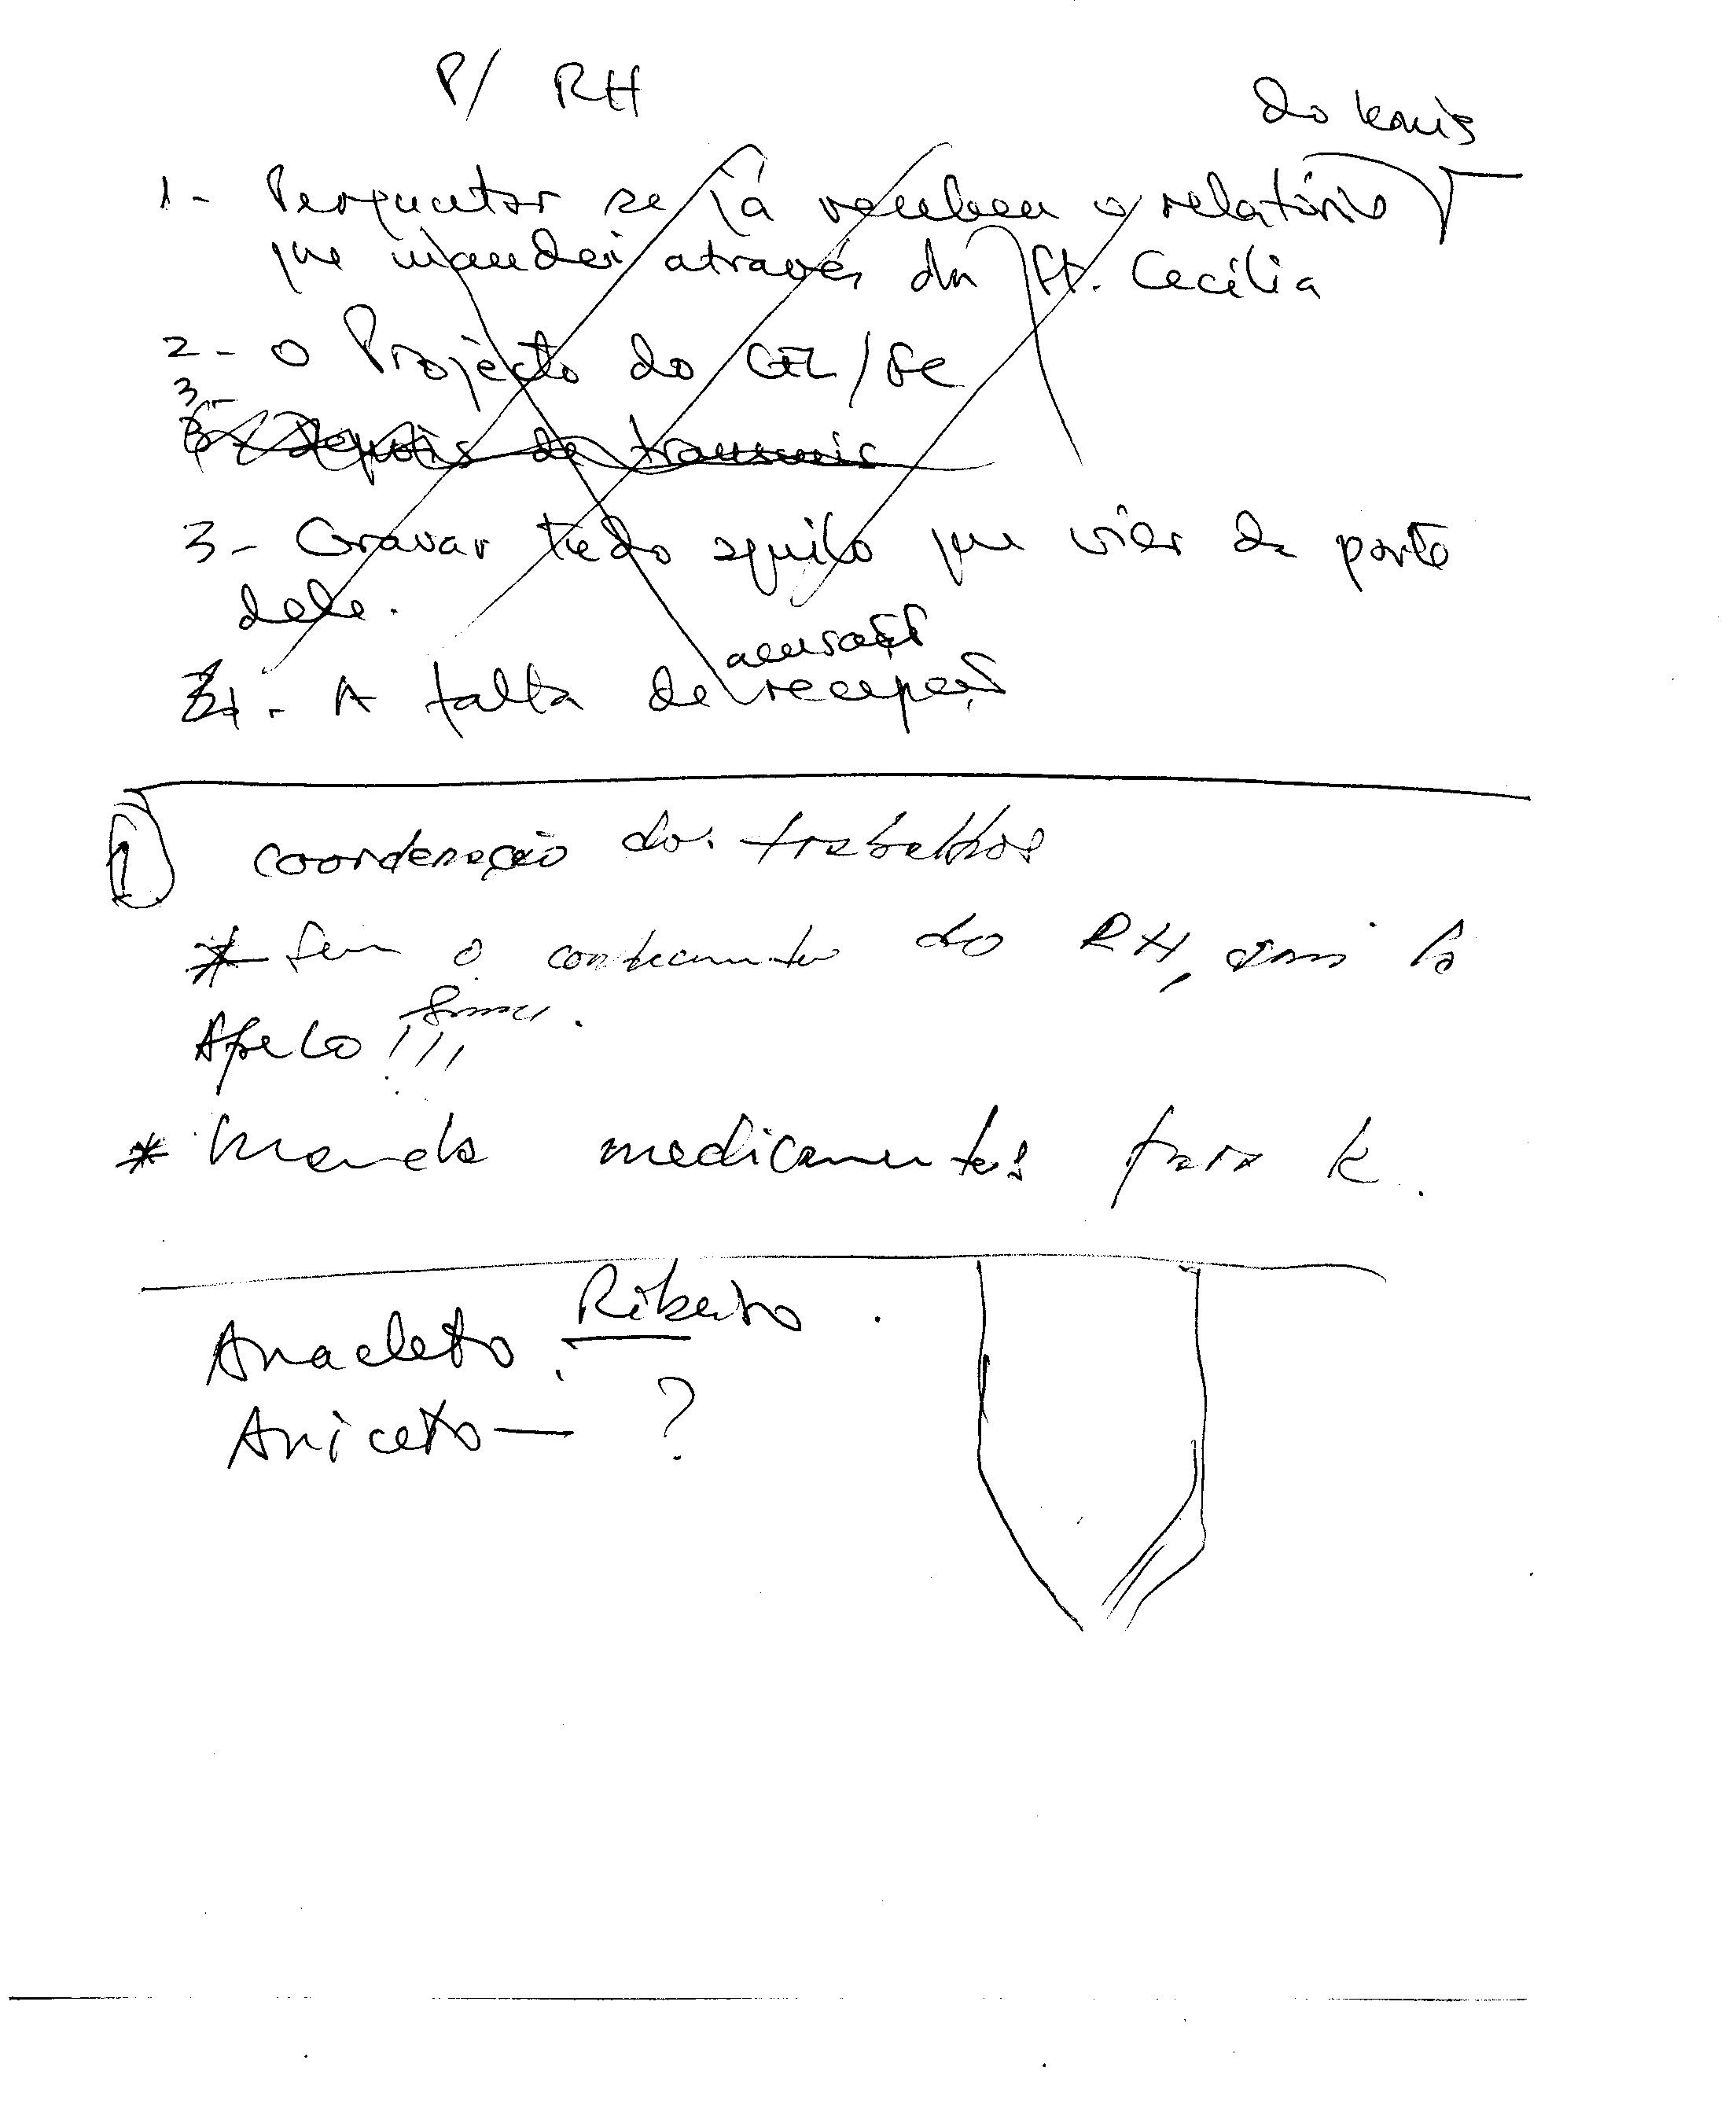 P/ RH
do Konis
1- Perguntar se já recebeu o relatório
que mandei através da St. Cecília
2- O Projecto do CTL/Fe
3-
depois de transmis
3- Gravar tudo aquilo que vier da parte
dele.
acusação
4- A falta de recepção
1 coordenação dos trabalhos
* Sem o conhecimento do RH,
Apelo !!!
* Manda medicamentos para k.
Anacleto. Ribeiro.
Aniceto — ?